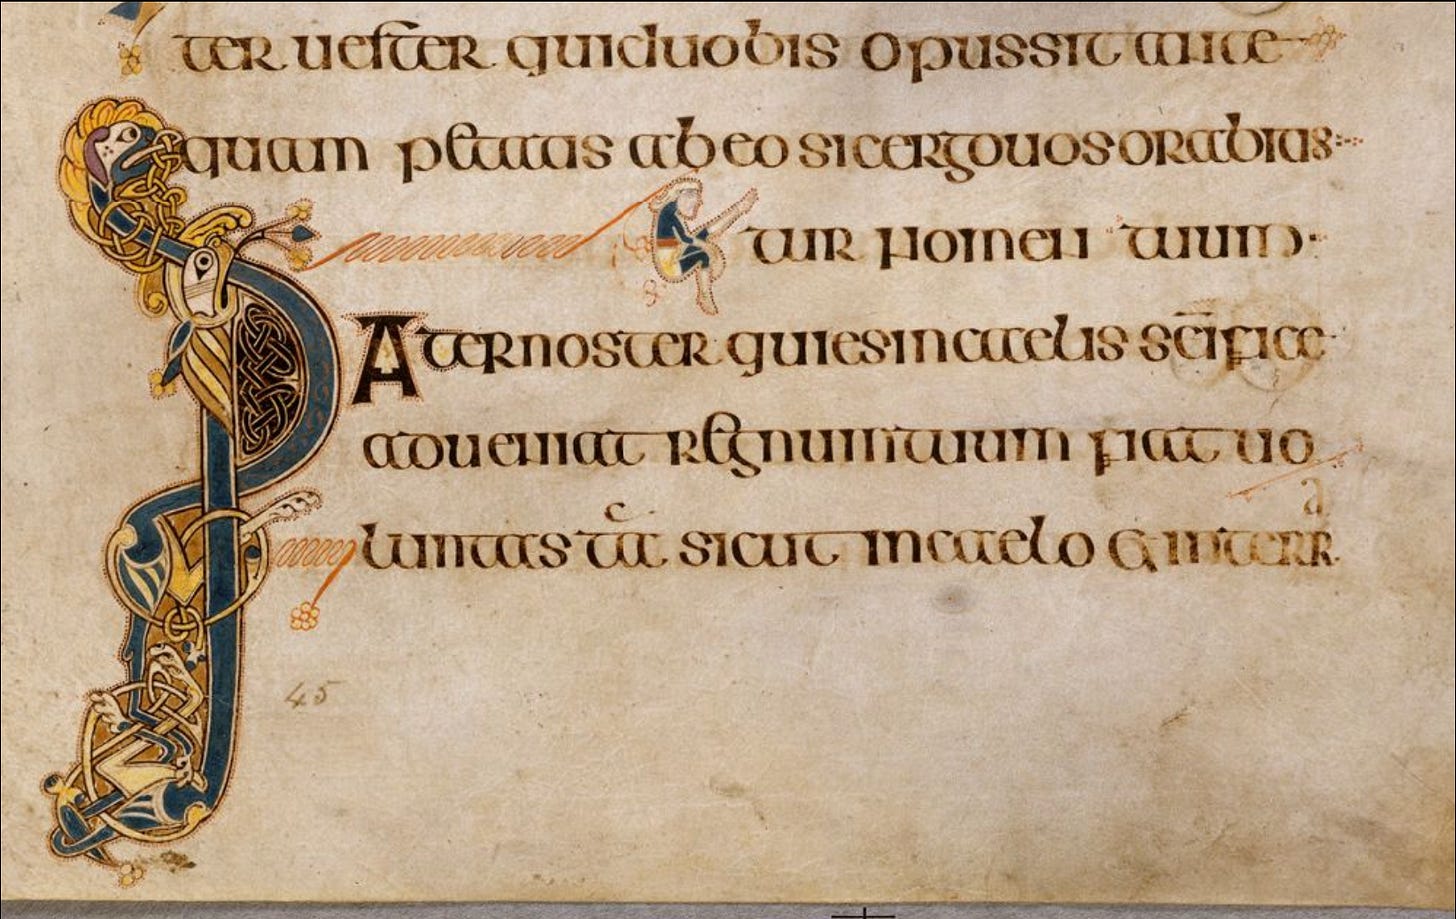 ter uester quid uobis opus sit ante
quam petatis ab eo sic ergo uos orabitis
tur nomen tuum
Pater noster qui es in caelis sc̄ifice
adueniat regnum tuum fiat uo
luntas tua sicut in caelo & in terra
45